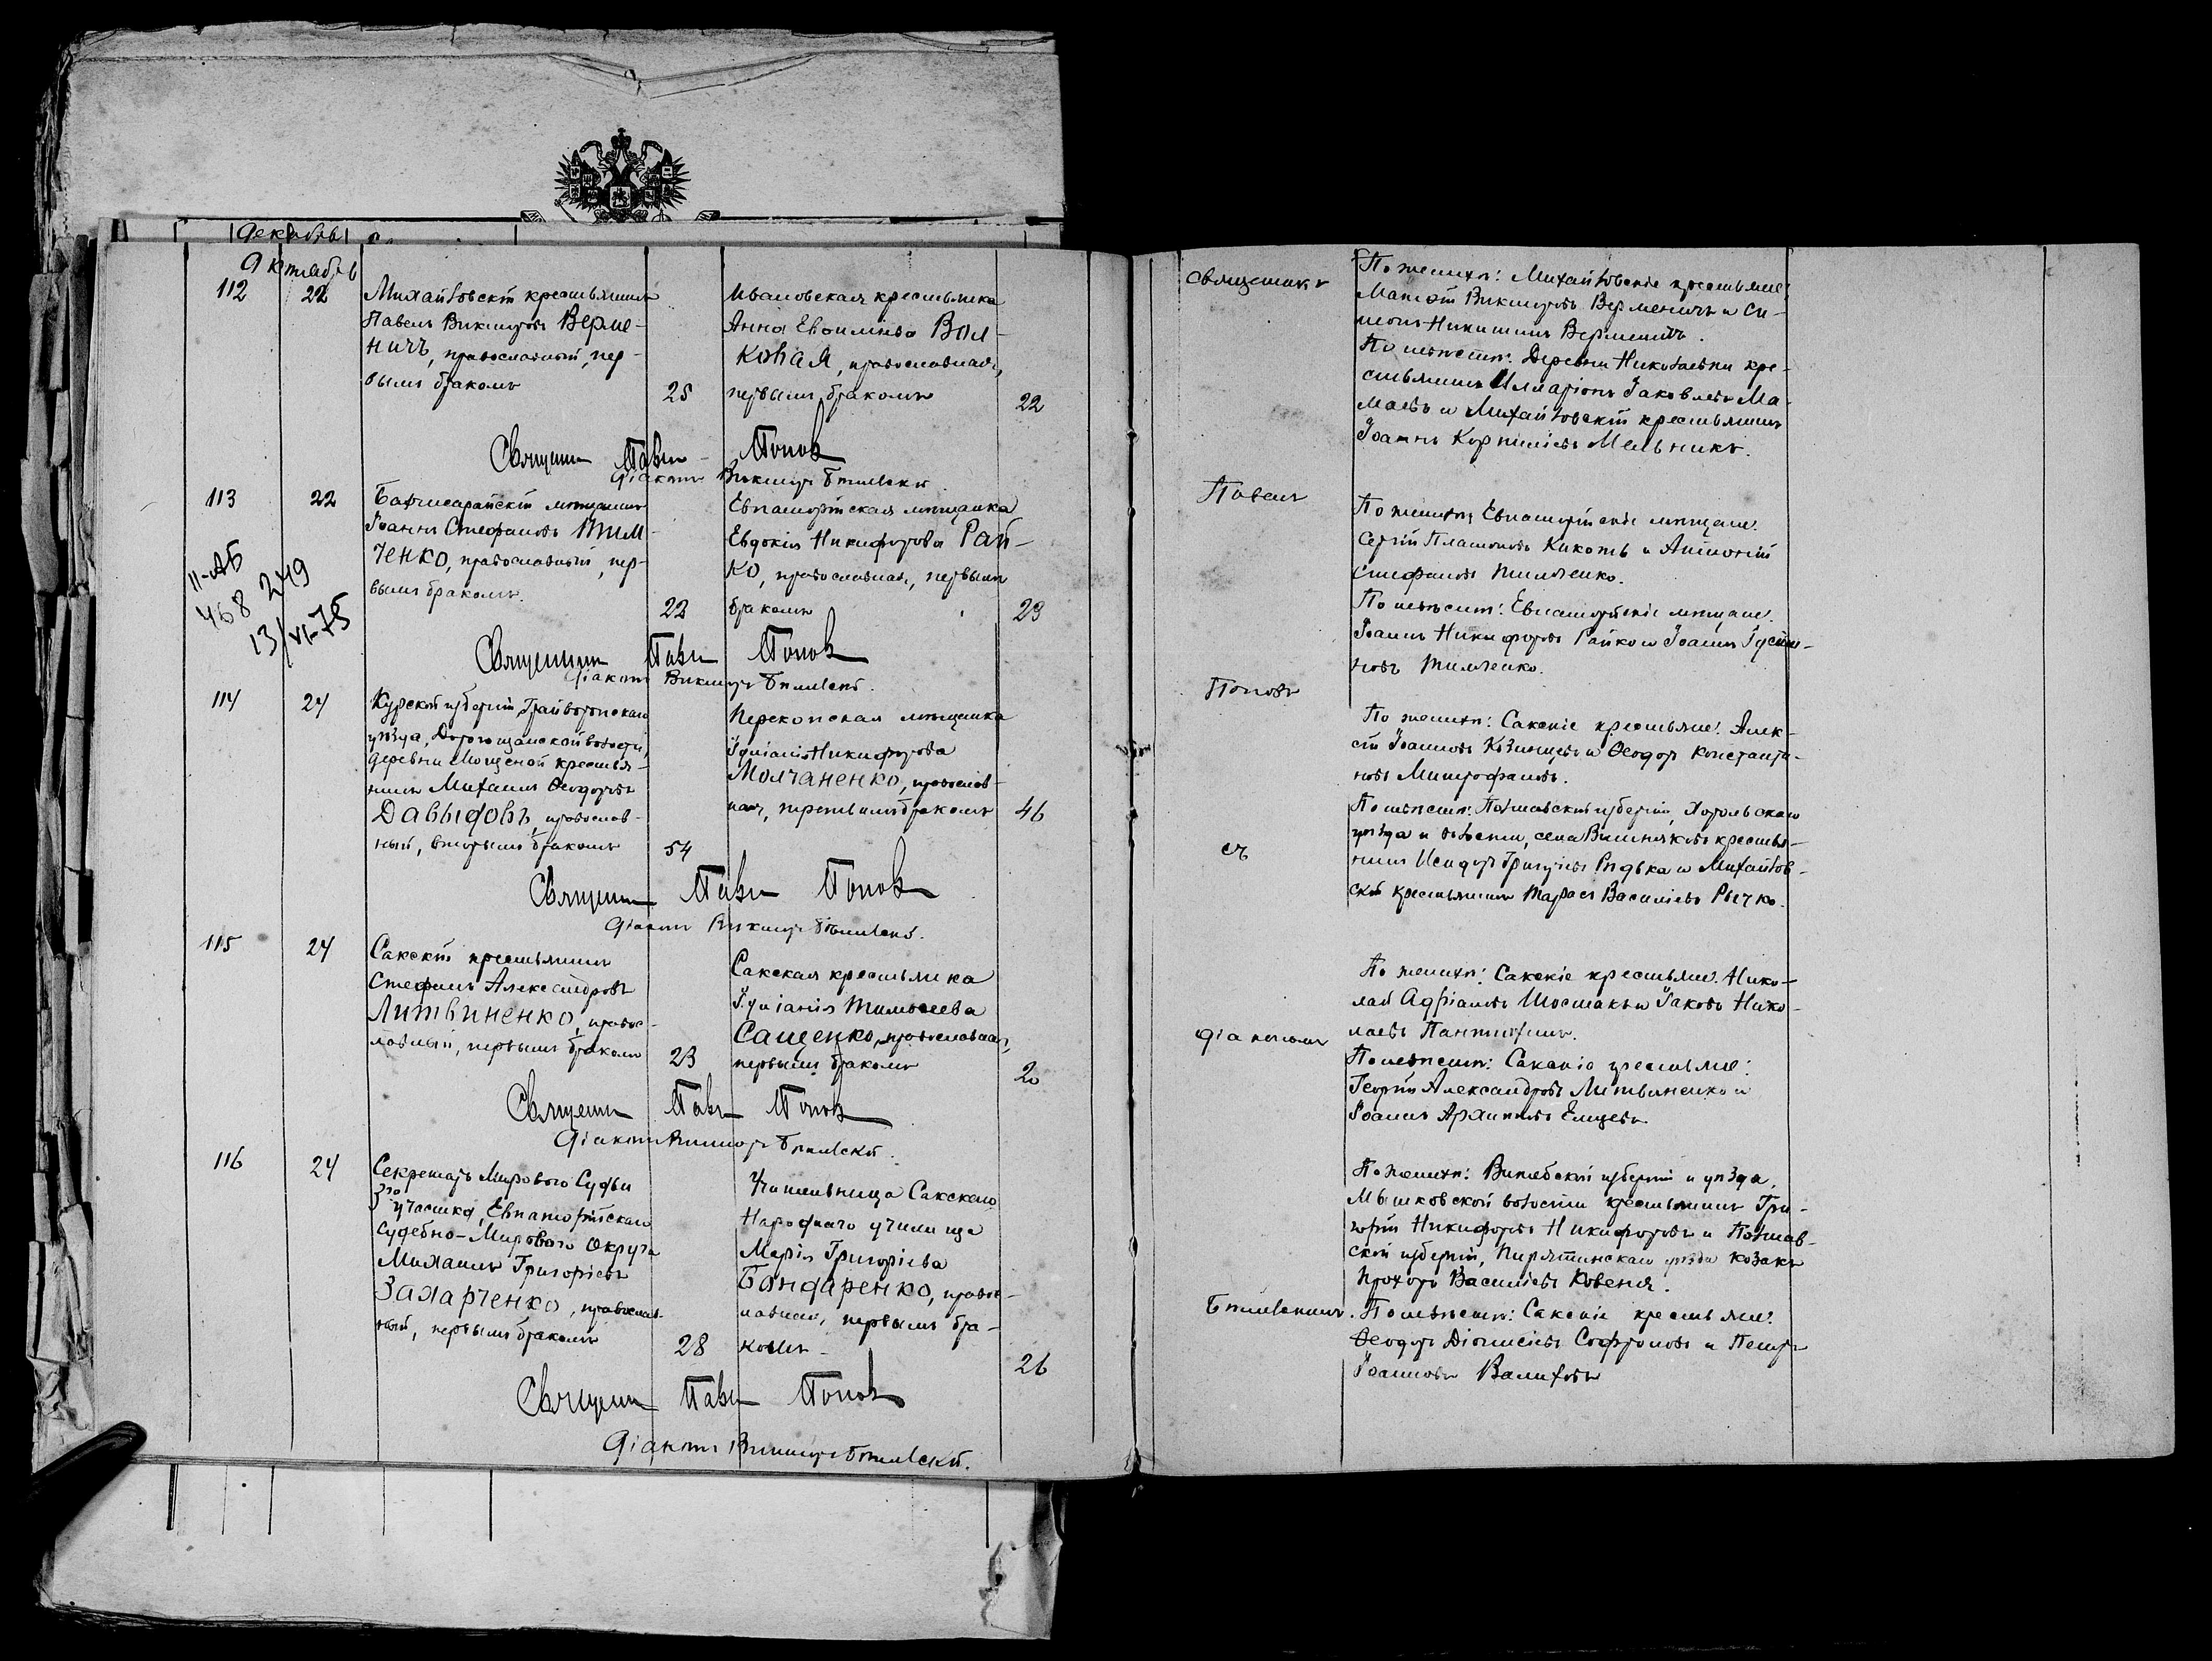 Декабрь
Октябрь
112
22
Михайловскій крестьянинъ
Павелъ Викторовъ Верме-
ничъ, православный, пер-
вымъ бракомъ
25
Ивановская крестьянка
Анна
Вол-
ковая, православная,
первымъ бракомъ
22
Священникъ Павелъ Поповъ
Діаконъ Викторъ
113
22
Бахчисарайскій мѣщанинъ
Іоаннъ Стефановъ Тим-
ченко, православный, пер-
вымъ бракомъ.
22
Евпаторійская мѣщанка
Евдокія Никифорова Рай-
ко, православная, первымъ
бракомъ
23
II-АБ
468 249
13/VI-75
Священникъ Павелъ Поповъ
Діаконъ Викторъ
114
24
Курской губерніи, Грайворонскаго
уѣзда, Дорогощанской волости,
деревни Мощеной крестья-
нинъ Михаилъ Ѳеодоровъ
Давыдовъ, православ-
ный, вторымъ бракомъ
54
Перекопская мѣщанка
Іуліанія Никифорова
Молчаненко, православ-
ная, третьимъ бракомъ
46
Священникъ Павелъ Поповъ
Діаконъ Викторъ
115
24
Сакскій крестьянинъ
Стефанъ Александровъ
Литвиненко, правос-
лавный, первымъ бракомъ
23
Сакская крестьянка
Іуліанія Тимоѳеева
Сащенко, православная,
первымъ бракомъ
20
Священникъ Павелъ Поповъ
Діаконъ Викторъ
116
24
Секретарь Мирового Судьи
3го участка, Евпаторійскаго
Судебно-Мирового Округа
Михаилъ Григорьевъ
Захарченко, православ-
ный, первымъ бракомъ
28
Учительница Сакскаго
Народнаго училища
Марія Григоріева
Бондаренко, правос-
лавная, первымъ бра-
комъ
26
Священникъ Павелъ Поповъ
Діаконъ Викторъ
Священникъ
Павелъ
Поповъ
съ
діакономъ
По женихѣ: Михайловскіе крестьяне:
Викторовъ Верменичъ и Си-
меонъ Никитинъ Верменичъ.
По невѣстѣ: Деревни Николаевки кре-
стьянинъ Илларіонъ Іаковлевъ Ма-
маевъ и Михайловскій крестьянинъ
Іоаннъ Корниліевъ Мельникъ.
По женихѣ: Евпаторійскіе мѣщане:
Сергій Платоновъ Кикоть и Антоній
Стефановъ Тимченко.
По невѣстѣ: Евпаторійскіе мѣщане:
Іоаннъ Никифоровъ Райко и Іоаннъ Іусти-
новъ Тимченко.
По женихѣ: Сакскіе крестьяне: Алек-
сій Іоанновъ и Ѳеодоръ Константи-
новъ Митрофановъ.
По невѣстѣ: Полтавской губерніи, Хорольскаго
уѣзда и волости, села Вишняковъ крестья-
нинъ Исидоръ Григорьевъ Рядька и Михайлов-
скій крестьянинъ Тарасъ Василіевъ Рычко.
По женихѣ: Сакскіе крестьяне: Нико-
лай Адріановъ Шостакъ и Іаковъ Нико-
лаевъ
По невѣстѣ: Сакскіе крестьяне:
Георгій Александровъ Литвиненко и
Іоаннъ Архиповъ Елицевъ
По женихѣ: Витебской губерніи и уѣзда,
Мышковской волости крестьянинъ Гри-
горій Никифоровъ Никифоровъ и Полтав-
ской губерніи, Пирятинскаго уѣзда козакъ
Прохоръ Василіевъ Ковеня.
По невѣстѣ: Сакскіе крестьяне:
Ѳеодоръ Діонисіевъ Софроновъ и Петръ
Іоанновъ Валиховъ